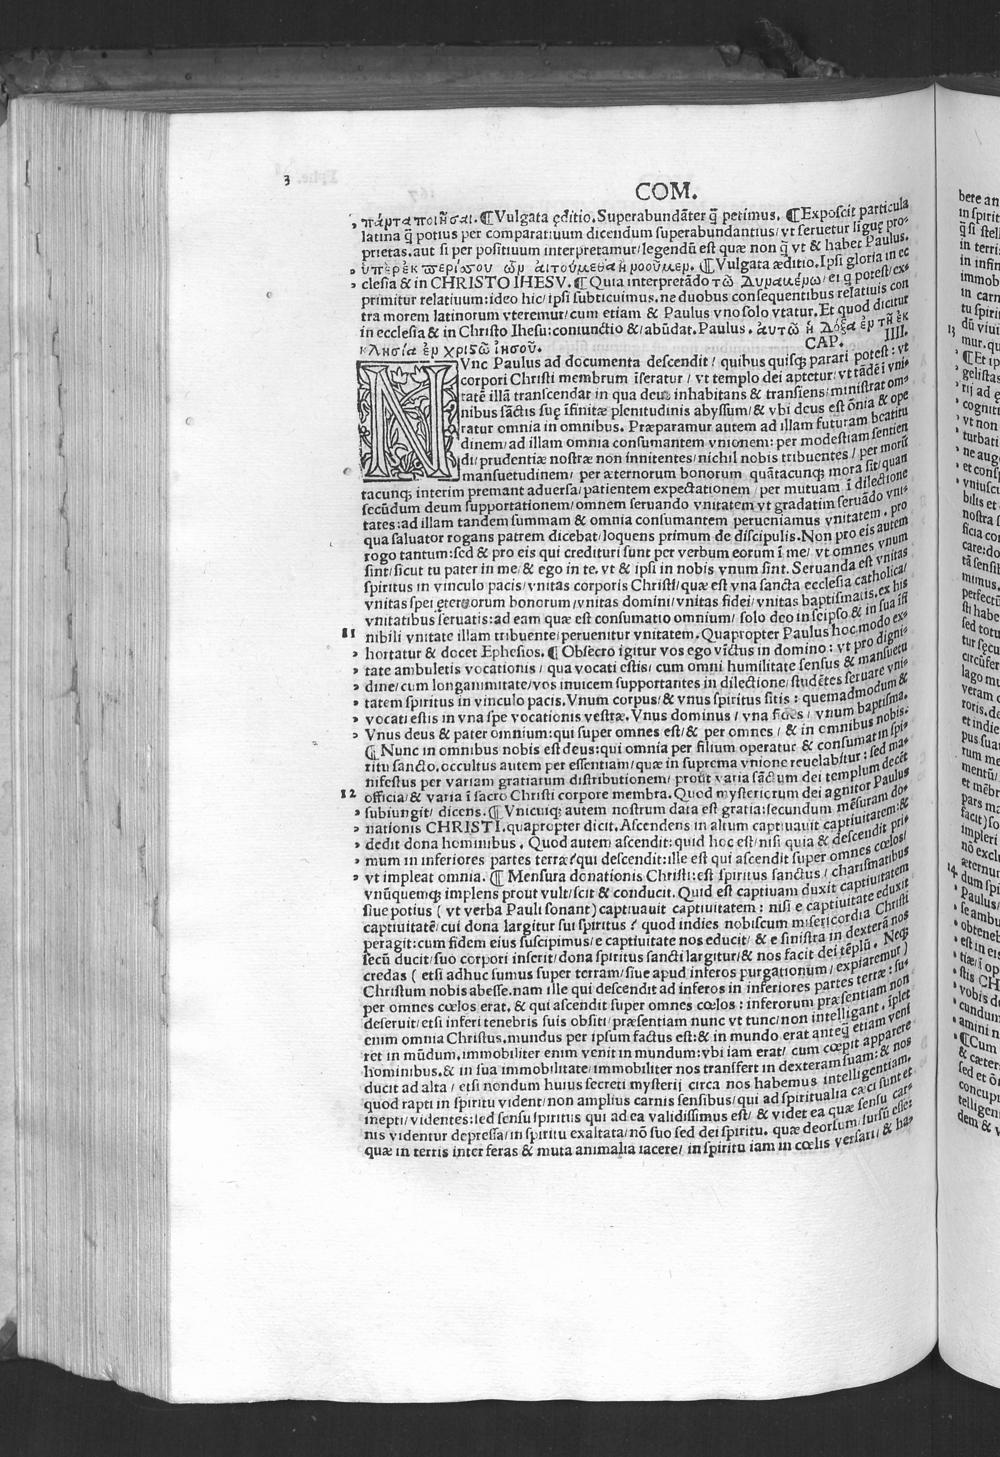 3
COM.
, πάντα ποιῆσαι. ¶Vulgata ęditio. Superabundãter q̃ petimus. ¶Exposcit particula
latina q̃ potius per comparatiuum dicendum superabundantius/vt seruetur liguę pro-
prietas. aut si per positiuum interpretamur/legendũ est quæ non q̃ vt & habet Paulus.
, ὑπὲρ ἐκ περισσου ὧν αἰτούμεθα ἢ νοοῦμεν. ¶Vulgata æditio. Ipsi gloria in ec
, clesia & in CHRISTO IHESV. ¶Quia interpretãdo τῶ Δυναμένω/ei q potest/ex-
primitur relatiuum: ideo hic/ipsi subticuimus. ne duobus consequentibus relatiuis con
tra morem latinorum vteremur/cum etiam & Paulus vno solo vtatur. Et quod dicitur
in ecclesia & in Christo Ihesu: coniunctio &/abũdat. Paulus. ἀυτῶ ἡ Δόξα ἐν τῆ ἐκ
κλησία ἐν χριστῶ ἰησοῦ. CAP. IIII.
NVnc Paulus ad documenta descendit/quibus quisq; parari potest: vt
corpori Christi membrum ĩseratur/vt templo dei aptetur/vt tãdẽ ĩ vni-
tatẽ illã transcendat in qua deus inhabitans & transiens/ministrat om-
nibus sãctis suę ĩfinitæ plenitudinis abyssum/& vbi deus est õnia & ope
ratur omnia in omnibus. Præparamur autem ad illam futuram beatitu
dinem/ad illam omnia consumantem vnionem: per modestiam sentien
di/prudentiæ nostræ non innitentes/nichil nobis tribuentes/per morũ
mansuetudinem/per æternorum bonorum quãtacunq; mora sit/quan
tacunq; interim premant aduersa/patientem expectationem/per mutuam ĩ dilectione
secũdum deum supportationem/omnem seruando vnitatem vt gradatim seruãdo vni-
tates: ad illam tandem summam & omnia consumantem perueniamus vnitatem. pro
qua saluator rogans patrem dicebat/loquens primum de discipulis. Non pro eis autem
rogo tantum: sed & pro eis qui credituri sunt per verbum eorum ĩ me/vt omnes vnum
sint/sicut tu pater in me/& ego in te, vt & ipsi in nobis vnum sint. Seruanda est vnitas
spiritus in vinculo pacis/vnitas corporis Christi/quæ est vna sancta ecclesia catholica/
vnitas spei ęternorum bonorum/vnitas domini/vnitas fidei/vnitas baptismatis. ex his
vnitatibus seruatis: ad eam quæ est consumatio omnium/solo deo in seipso & in sua ĩfi
11 nibili vnitate illam tribuente/peruenitur vnitatem. Quapropter Paulus hoc modo ex-
, hortatur & docet Ephesios. ¶Obsecro igitur vos ego vĩctus in domino: vt pro digni-
, tate ambuletis vocationis/qua vocati estis/cum omni humilitate sensus & mansuetu
, dine/cum longanimitate/vos inuicem supportantes in dilectione/studẽtes seruare vni-
, tatem spiritus in vinculo pacis. Vnum corpus/& vnus spiritus sitis: quemadmodum &
, vocati estis in vna spe vocationis vestræ. Vnus dominus/vna fides/vnum baptisma.
, Vnus deus & pater omnium: qui super omnes est/& per omnes/& in omnibus nobis.
¶Nunc in omnibus nobis est deus: qui omnia per filium operatur & consumat in spi-
ritu sancto. occultus autem per essentiam/quæ in suprema vnione reuelabitur: sed ma-
nifestus per variam gratiarum distributionem/prout varia sãctum dei templum decẽt
12 officia/& varia ĩ sacro Christi corpore membra. Quod mysteriorum dei agnitor Paulus
, subiungit/dicens. ¶Vnicuiq; autem nostrum data est gratia: secundum mẽsuram do-
, nationis CHRISTI. quapropter dicit. Ascendens in altum captiuauit captiuitatem: &
, dedit dona hominibus. Quod autem ascendit: quid hoc est/nisi quia & descendit pri-
, mum in inferiores partes terræ? qui descendit: ille est qui ascendit super omnes cœlos/
, vt impleat omnia. ¶Mensura donationis Christi: est spiritus sanctus/charismatibus
vnũquemq; implens prout vult/scit & conducit. Quid est captiuam duxit captiuitatem
siue potius (vt verba Pauli sonant) captiuauit captiuitatem: nisi e captiuitate eduxit
captiuitatẽ/cui dona largitur sui spiritus? quod indies nobiscum misericordia Christi
peragit: cum fidem eius suscipimus/e captiuitate nos educit/& e sinistra in dexterã nos
secũ ducit/suo corpori inserit/dona spiritus sancti largitur/& nos facit dei tẽplũ. Neq;
credas (etsi adhuc sumus super terram/siue apud inferos purgationum/expiaremur)
Christum nobis abesse. nam ille qui descendit ad inferos in inferiores partes terræ: su-
per omnes cœlos erat. & qui ascendit super omnes cœlos: inferorum præsentiam non
deseruit/etsi inferi tenebris suis obsiti/præsentiam nunc vt tunc/non intelligant. ĩplet
enim omnia Christus. mundus per ipsum factus est: & in mundo erat anteq̃ etiam veni
ret in mũdum. immobiliter enim venit in mundum: vbi iam erat/cum cœpit apparere
hominibus. & in sua immobilitate/immobiliter nos transfert in dexteram suam: & nos
ducit ad alta/etsi nondum huius secreti mysterij circa nos habemus intelligentiam.
quod rapti in spiritu vident/non amplius carnis sensibus/qui ad spiritualia cæci sunt et
inepti/videntes: sed sensu spiritus qui ad ea validissimus est/& videt ea quæ sensu car-
nis videntur depressa/in spiritu exaltata/nõ suo sed dei spiritu. quæ deorsum/sursũ esse:
quæ in terris inter feras & muta animalia iacere/in spiritu iam in cœlis versari/& ha-